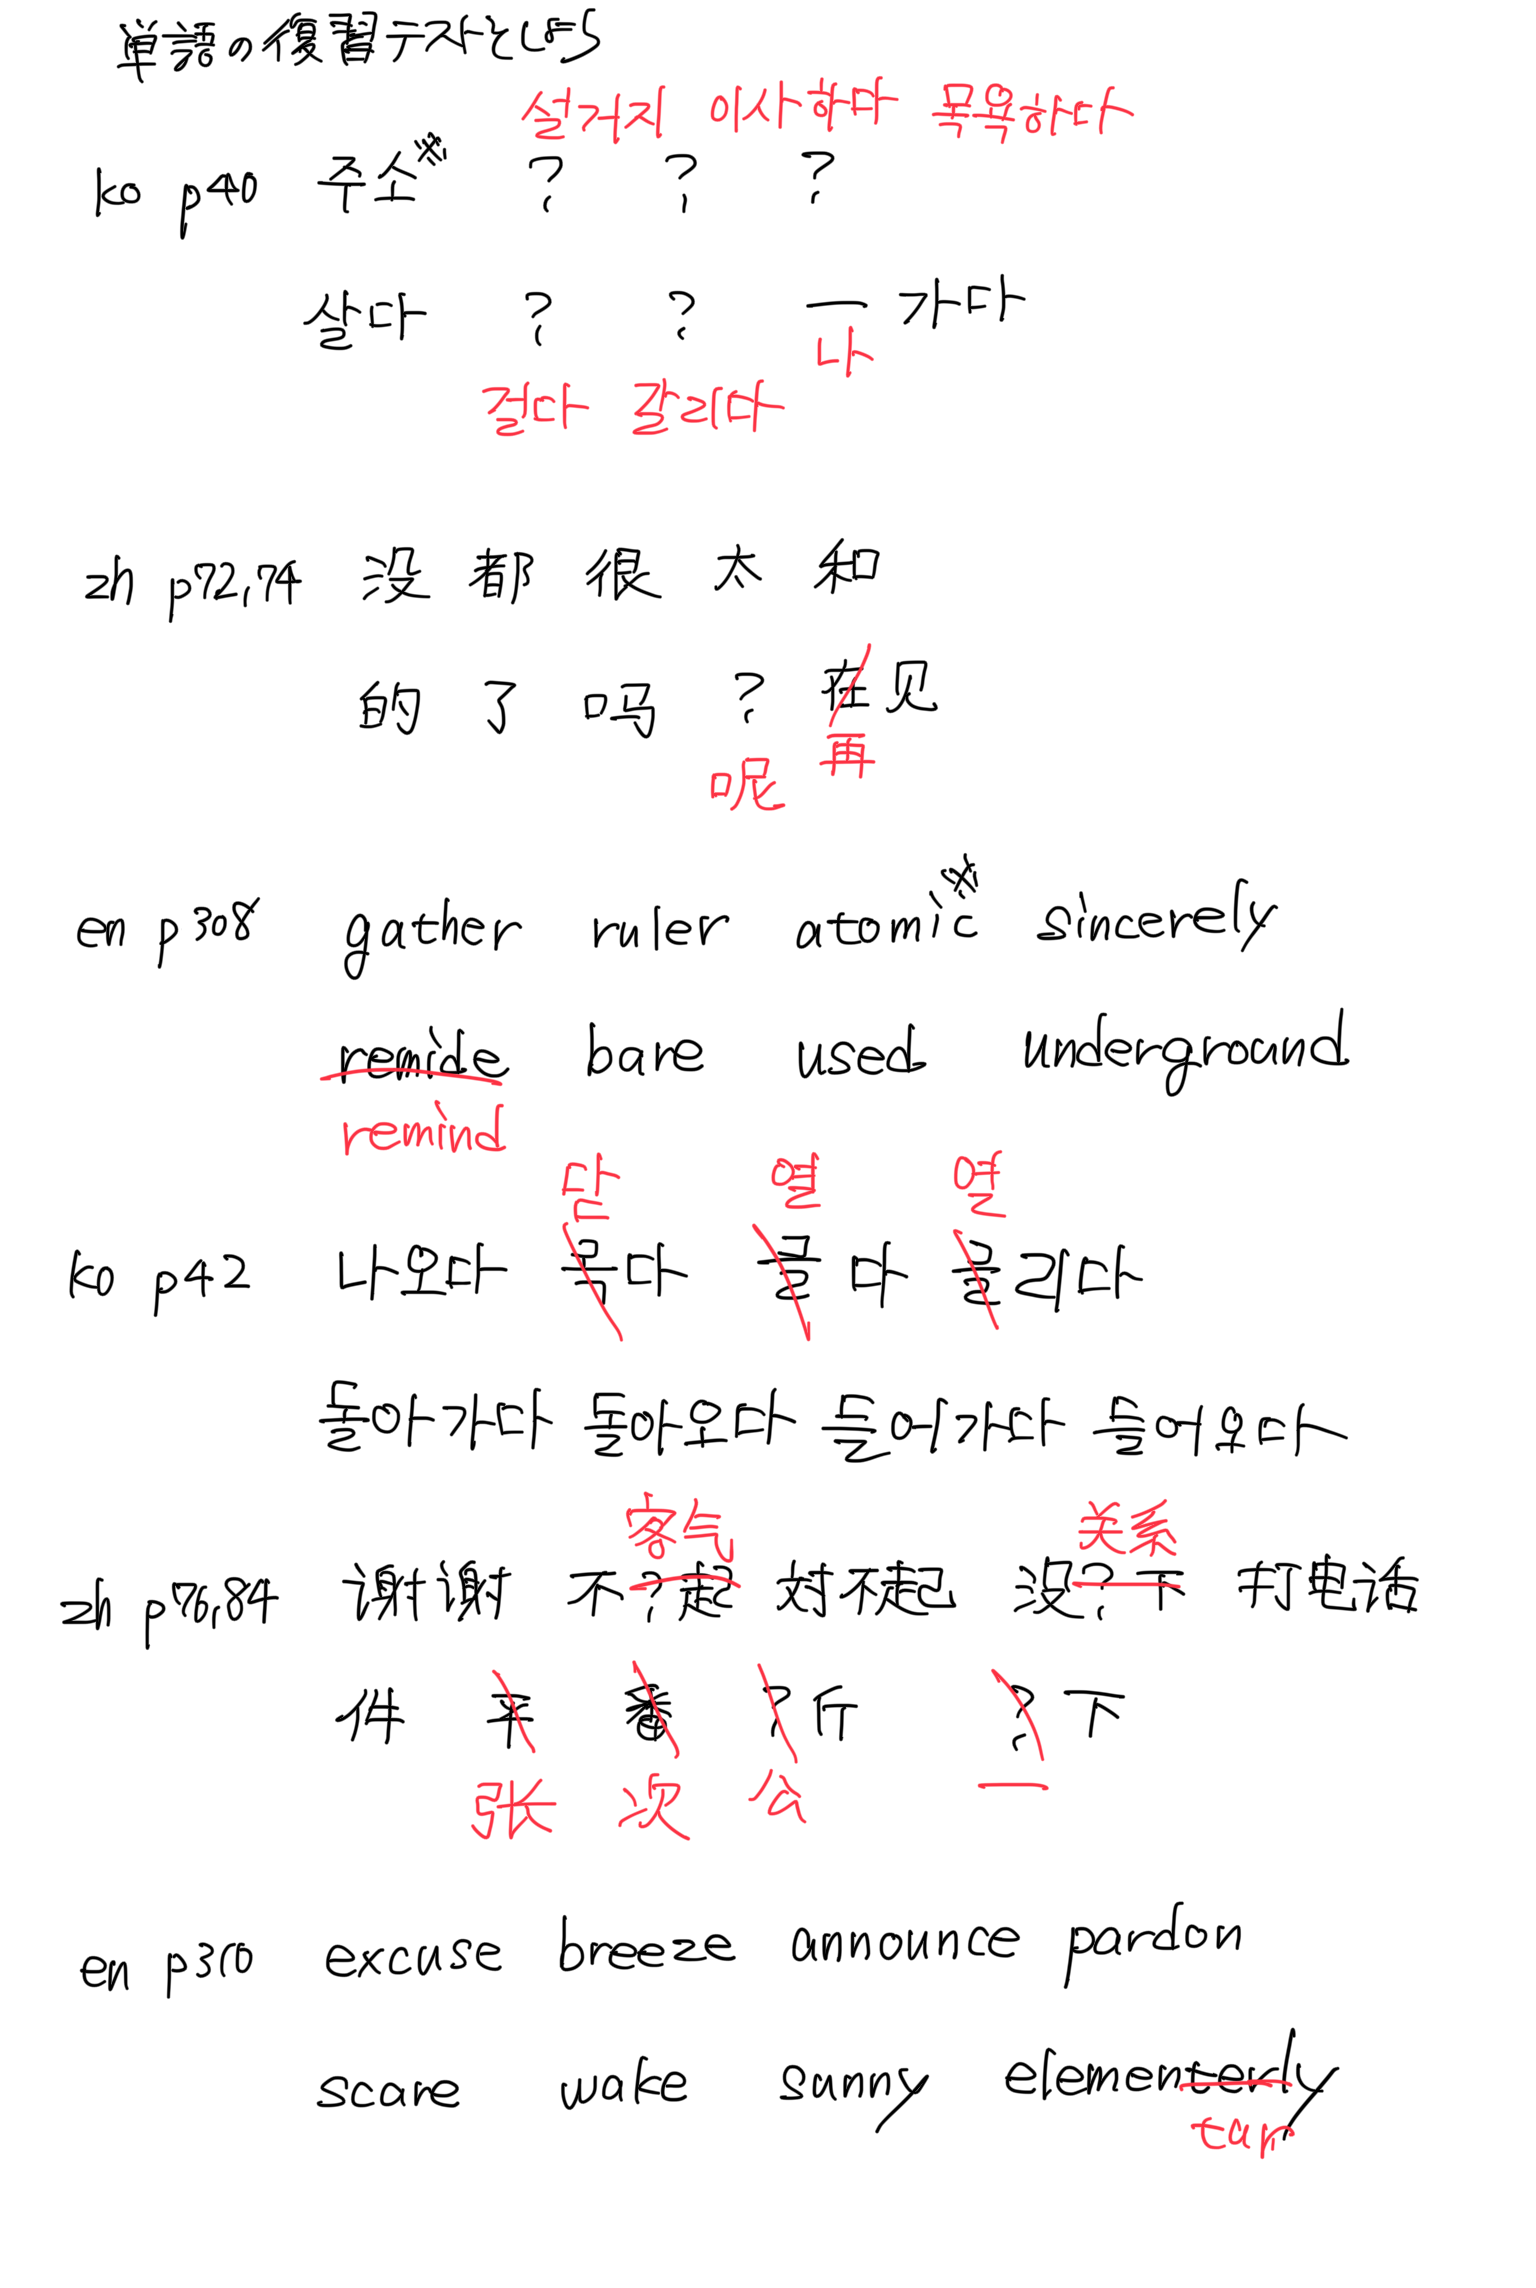 単語の復習テストをしよう
설거지 이사하다 목욕하다
ko p40 주소※ ? ? ?
살다 ? ? 一 가다
나
걷다 갈리다
zh p72,74 没 都 很 太 和
的 了 吗 ? 在见
呢 再
en p308 gather ruler atomic※ sincerely
remide bare used underground
remind
닫 열 열
ko p42 나오다 묵다 물다 물리다
돌아가다 돌아오다 들어가다 들어오다
客气 关系
zh p76,84 谢谢 不?起 对不起 没?下 打电话
件 平 番 ?斤 ?下
张 次 公 一
en p300 excuse breeze announce pardon
scare wake sunny elementerly
tar